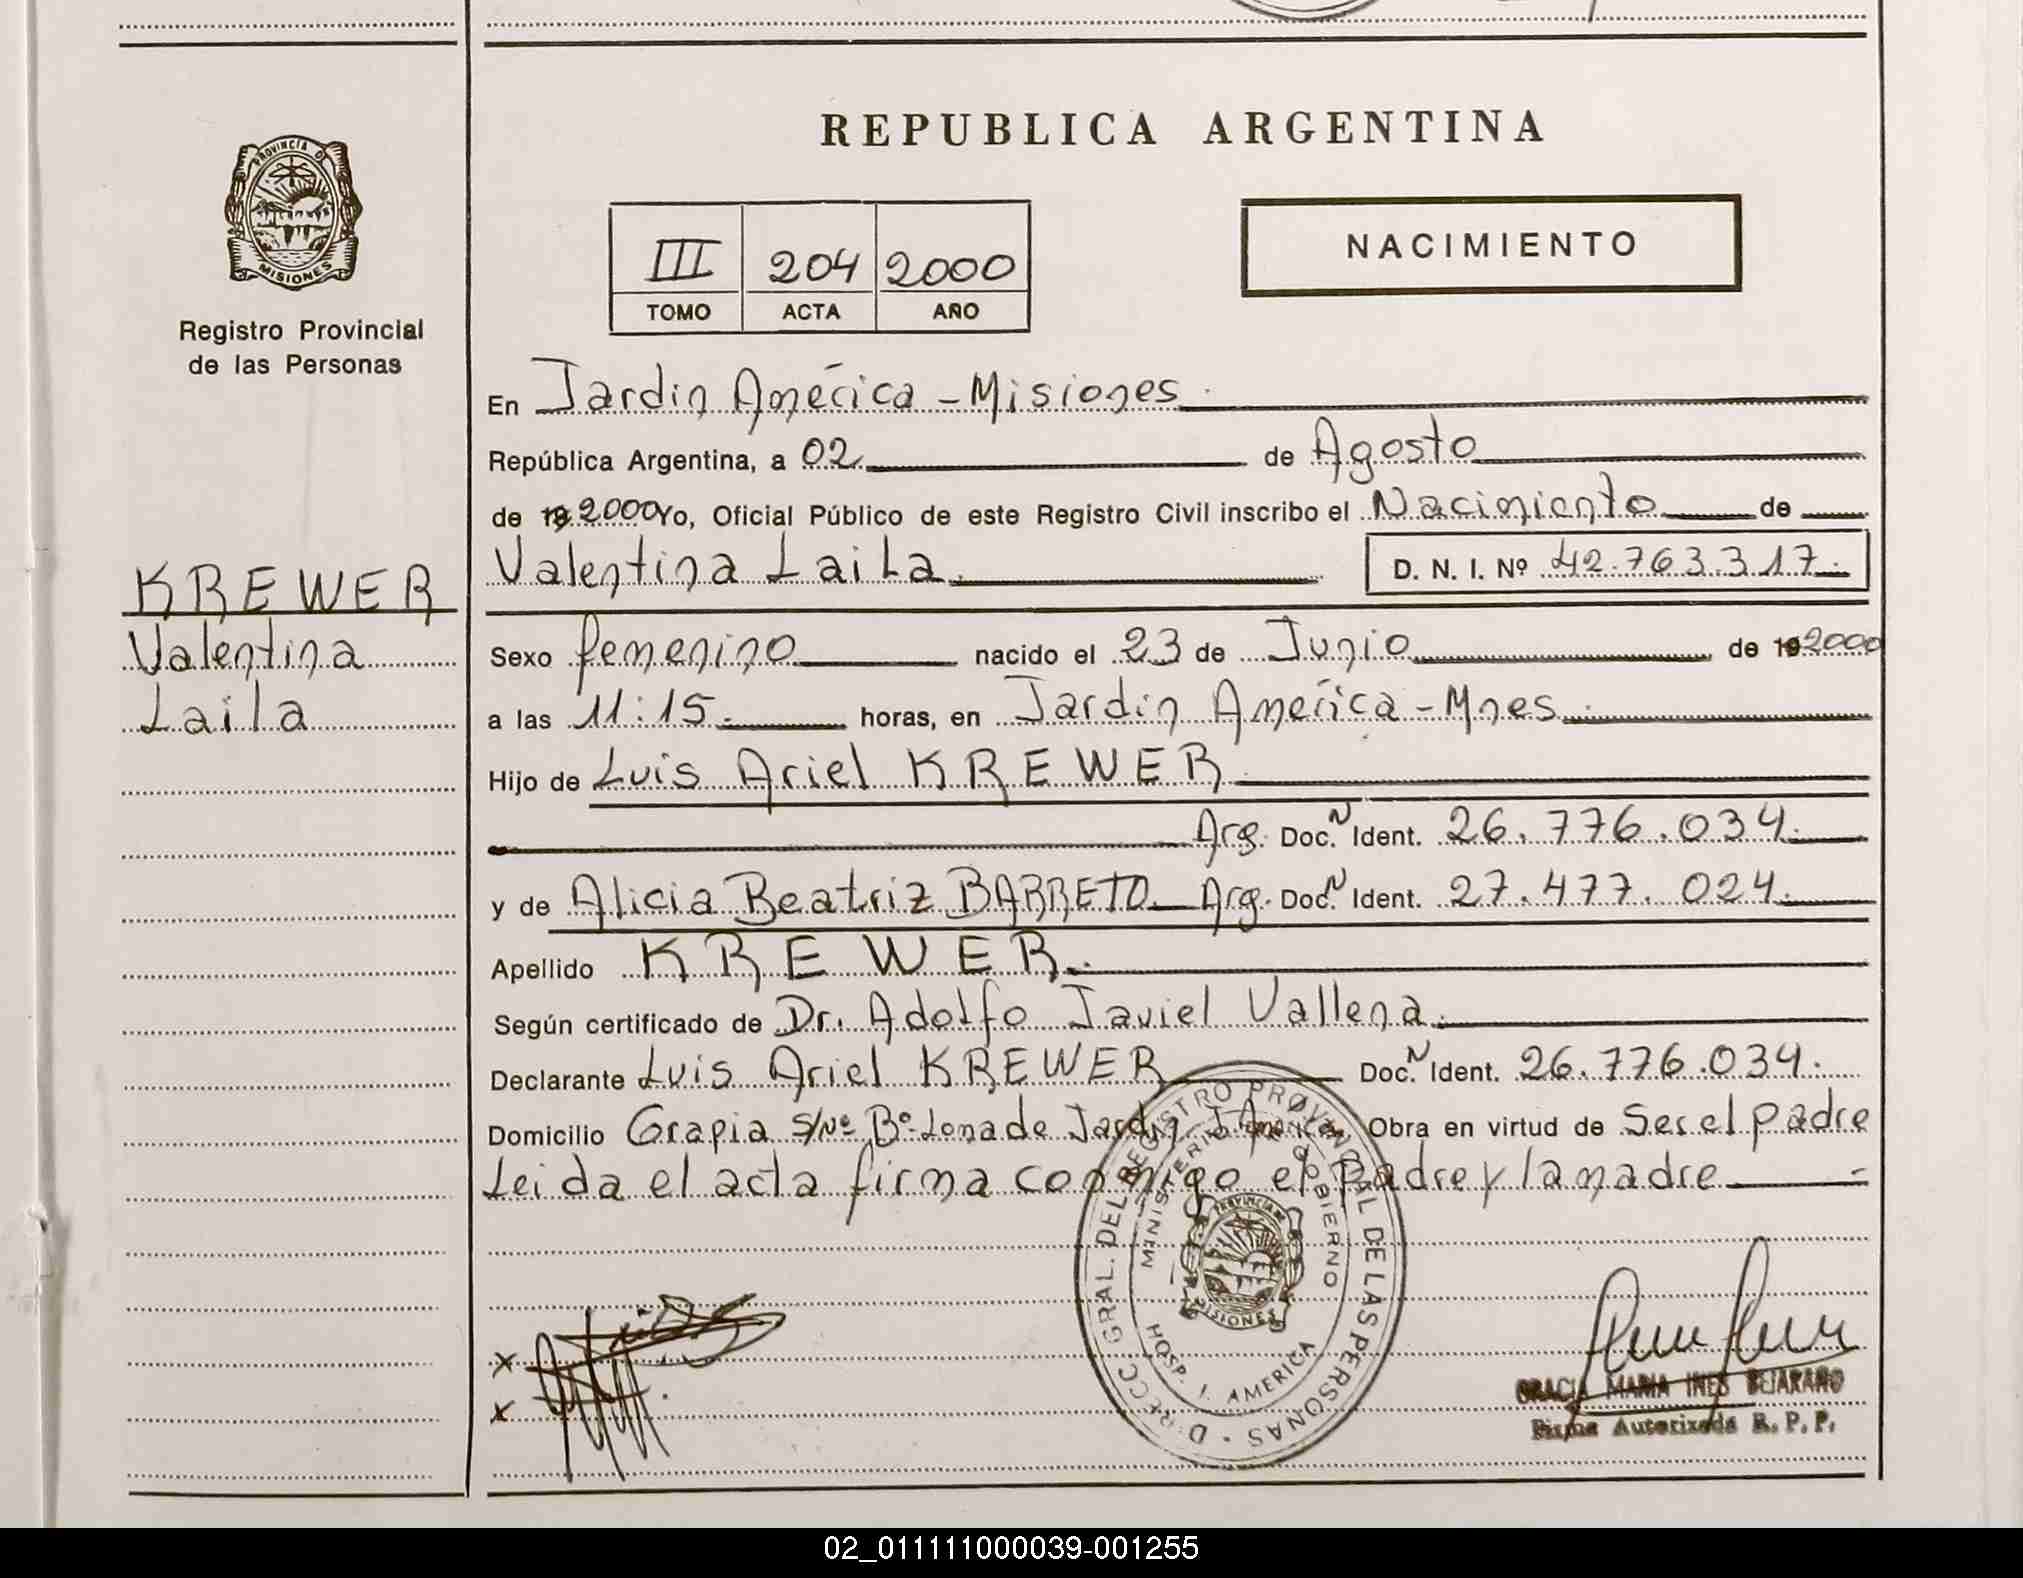 REPUBLICA ARGENTINA
PROVINCIA D
MISIONES
Registro Provincial
de las Personas
III 204 2000
TOMO ACTA AÑO
NACIMIENTO
En Jardin América - Misiones.
República Argentina, a 02. de Agosto
de 19 2000 Yo, Oficial Público de este Registro Civil inscribo el Nacimiento de
Valentina Laila. D. N. I. Nº 42.763.317.
KREWER
Valentina
Laila
Sexo femenino nacido el 23 de Junio de 19 2000
a las 11:15. horas, en Jardin América - Mnes.
Hijo de Luis Ariel KREWER
Arg. Doc. N Ident. 26.776.034.
y de Alicia Beatriz BARRETO Arg. Doc. N Ident. 27.477.024.
Apellido KREWER.
Según certificado de Dr. Adolfo Javiel Vallena.
Declarante Luis Ariel KREWER Doc. N Ident. 26.776.034.
Domicilio Grapia S/Nº Bº Loma de Jardin América Obra en virtud de Ser el padre
Leida el acta firma conmigo el padre y la madre
D RECC GRAL. DEL REGISTRO PROVINCIAL DE LAS PERSONAS
MINISTERIO GOBIERNO
PROVINCIA DE
MISIONES
HOSP. J. AMERICA
x
x
GRACIA MARIA INES BEJARANO
Firma Autorizada R. P. P.
02_011111000039-001255